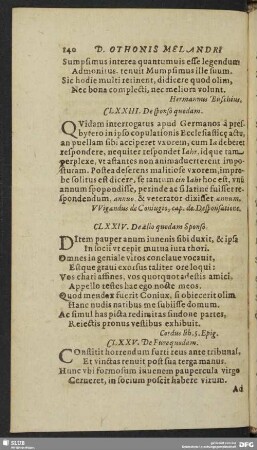 140 D. OTHONIS MELANDRI
Sumpsimus interea quantumuis esse legendum
Admonitus, tenuit Mumpsimus ille suum.
Sic hodie multi retinent, didicere quod olim,
Nec bona complecti, nec meliora volunt.
Hermannus Buschius,
CLXXIII. De sponso quodam.
QVidam interrogatus apud Germanos à pres-
bytero in ipso copulationis Ecclesiasticę actu,
an puellam sibi acciperet vxorem, cum Ia deberet
respondere, nequiter respondet Iahr, idque tam
perplexe, vt astantes non animaduerterent impo-
sturam. Postea deserens maliriose vxorem, impro-
be solitus est dicere, se tantum ein Iahr hoc est, vnū
annum spopodisse, perinde ac si latine fuisset re-
spondendum, annuo, & veterator dixisset annum,
VVigandus de Coniugio, cap. de Desponsatione.
CLXXIV. De alio quodam Sponso.
DItem pauper anum iuuenis sibi duxit, & ipsa
In locū vt cepit mutua iura thori.
Omnes in geniale vitos conclaue vocauit,
Estque graui exorsus taliter ore loqui:
Vos chari affines, vos quotquot adestis amici,
Appello testes hac ego nocte meos.
Quod mendax fuerit Coniux, si obiicerit olim
Hanc nudis natibus me subiisse domum.
Ac simul has picta rediuitas sindone partes,
Reiectis pronus vestibus exhibuit.
Cordus lib. 5. Epig.
CLXXV. De Fure quodam.
COnstitit horrendum furti reus ante tribunal,
Et vinctas renuit post sua terga manus.
Hunc vbi formosum iuuenem paupercula virgo
Cerneret, in socium poscit habere virum.
Ad
SLUB